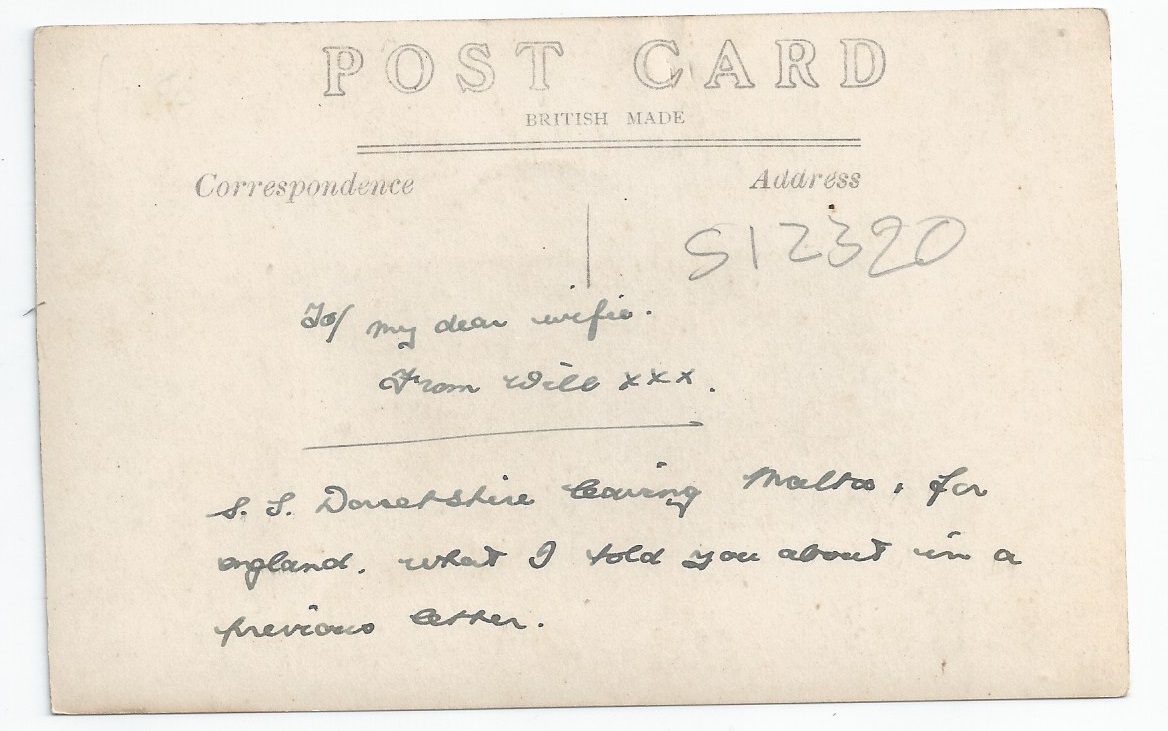 POST CARD
BRITISH MADE
Correspondence
Address
S12320
To/ my dear wifie.
From Will xxx.
S.S. Dorsetshire leaving Malta, for
england. what I told you about in a
previous letter.